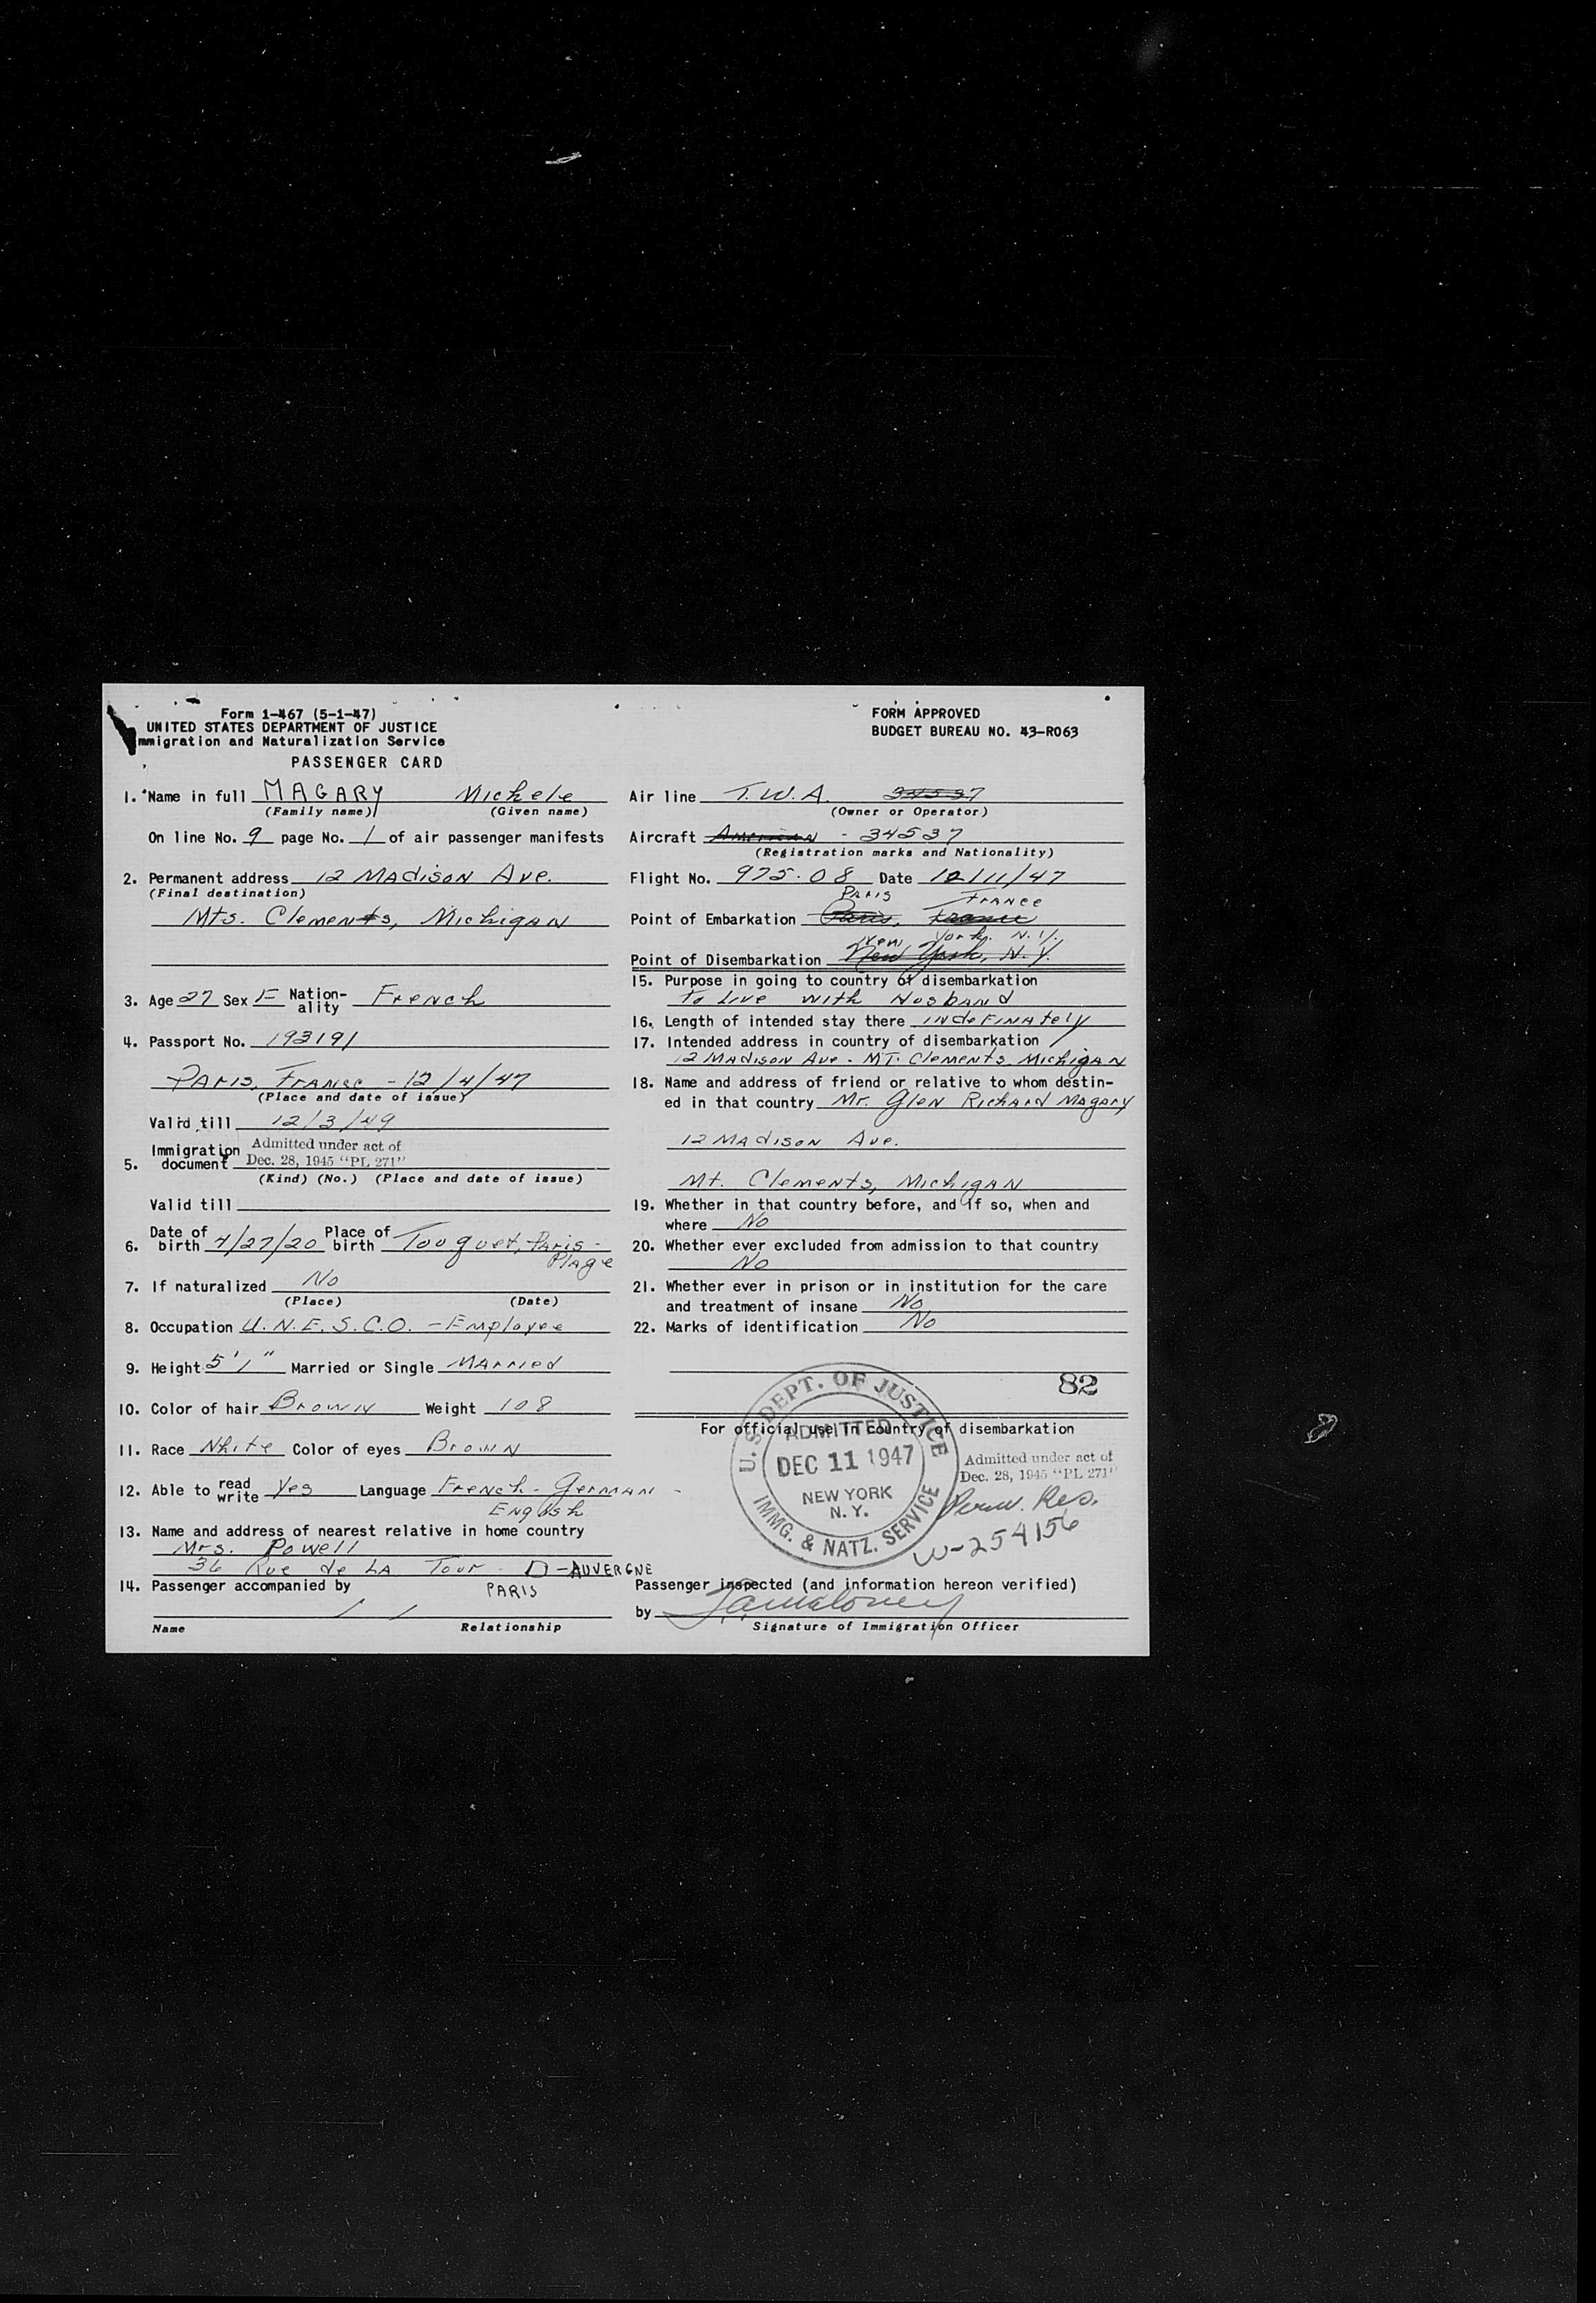 Form 1-467 (5-1-47)
UNITED STATES DEPARTMENT OF JUSTICE
mmigration and Naturalization Service
PASSENGER CARD
FORM APPROVED
BUDGET BUREAU NO. 43-R063
1. Name in full MAGARY Michele
(Family name) (Given name)
On line No. 9 page No. 1 of air passenger manifests
2. Permanent address 12 Madison Ave.
(Final destination)
Mts. Clements, Michigan
3. Age 27 Sex F Nation-ality French
4. Passport No. 193191
Paris, France - 12/4/47
(Place and date of issue)
Valid till 12/3/49
5. Immigration document Admitted under act of
Dec. 28, 1945 "PL 271"
(Kind) (No.) (Place and date of issue)
Valid till
6. Date of birth 4/27/20 Place of birth Touquet, Paris-
Plage
7. If naturalized No
(Place) (Date)
8. Occupation U.N.E.S.C.O. - Employee
9. Height 5'1" Married or Single Married
10. Color of hair Brown Weight 108
11. Race White Color of eyes Brown
12. Able to read write Yes Language French - German -
English
13. Name and address of nearest relative in home country
Mrs. Powell
36 Rue de LA Tour - D-AUVERGNE
PARIS
14. Passenger accompanied by
/ /
Name Relationship
Air line T.W.A. 34537
(Owner or Operator)
Aircraft American - 34537
(Registration marks and Nationality)
Flight No. 975-08 Date 12/11/47
Paris France
Point of Embarkation Paris, France
New York. N.Y.
Point of Disembarkation New York, N.Y.
15. Purpose in going to country of disembarkation
To Live with Husband
16. Length of intended stay there indefinately
17. Intended address in country of disembarkation
12 Madison Ave - MT. Clements, Michigan
18. Name and address of friend or relative to whom destin-
ed in that country Mr. Glen Richard Magary
12 Madison Ave.
Mt. Clements, Michigan
19. Whether in that country before, and if so, when and
where No
20. Whether ever excluded from admission to that country
No
21. Whether ever in prison or in institution for the care
and treatment of insane No
22. Marks of identification No
82
For official use in country of disembarkation
U.S. DEPT. OF JUSTICE
ADMITTED
DEC 11 1947
NEW YORK
N.Y.
IMMG. & NATZ. SERVICE
Admitted under act of
Dec. 28, 1945 "PL 271"
Perm. Res.
W-254156
Passenger inspected (and information hereon verified)
by
Signature of Immigration Officer